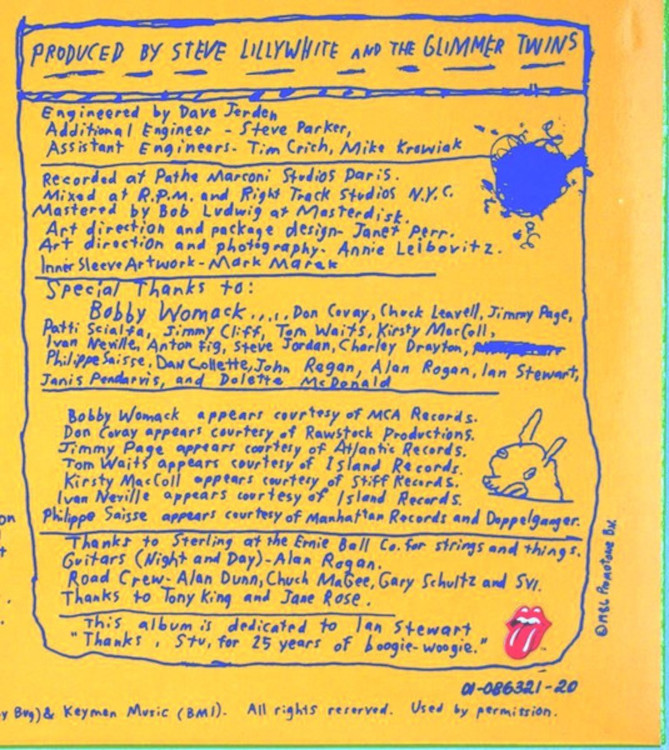 PRODUCED BY STEVE LILLYWHITE AND THE GLIMMER TWINS
Engineered by Dave Jerden
Additional Engineer - Steve Parker,
Assistant Engineers- Tim Crich, Mike Krowiak
Recorded at Pathe Marconi Studios Paris.
Mixed at R.P.M. and Right Track Studios N.Y.C.
Mastered by Bob Ludwig at Masterdisk.
Art direction and package design- Janet Perr.
Art direction and photography- Annie Leibovitz.
Inner Sleeve Artwork - Mark Marek
Special Thanks to:
Bobby Womack..... Don Covay, Chuck Leavell, Jimmy Page,
Patti Scialfa, Jimmy Cliff, Tom Waits, Kirsty MacColl,
Ivan Neville, Anton Fig, Steve Jordan, Charley Drayton,
Philippe Saisse, Dan Collette, John Regan, Alan Rogan, Ian Stewart,
Janis Pendarvis, and Dolette McDonald
Bobby Womack appears courtesy of MCA Records.
Don Covay appears courtesy of Rawstock Productions.
Jimmy Page appears courtesy of Atlantic Records.
Tom Waits appears courtesy of Island Records.
Kirsty MacColl appears courtesy of Stiff Records.
Ivan Neville appears courtesy of Island Records.
Philippe Saisse appears courtesy of Manhattan Records and Doppelganger.
Thanks to Sterling at the Ernie Ball Co. for strings and things.
Guitars (Night and Day) - Alan Rogan.
Road Crew- Alan Dunn, Chuck MaGee, Gary Schultz and SVI.
Thanks to Tony King and Jane Rose.
This album is dedicated to Ian Stewart
"Thanks, Stu, for 25 years of boogie-woogie."
01-086321-20
y Bug) & Keyman Music (BMI). All rights reserved. Used by permission.
Promotone B.V.